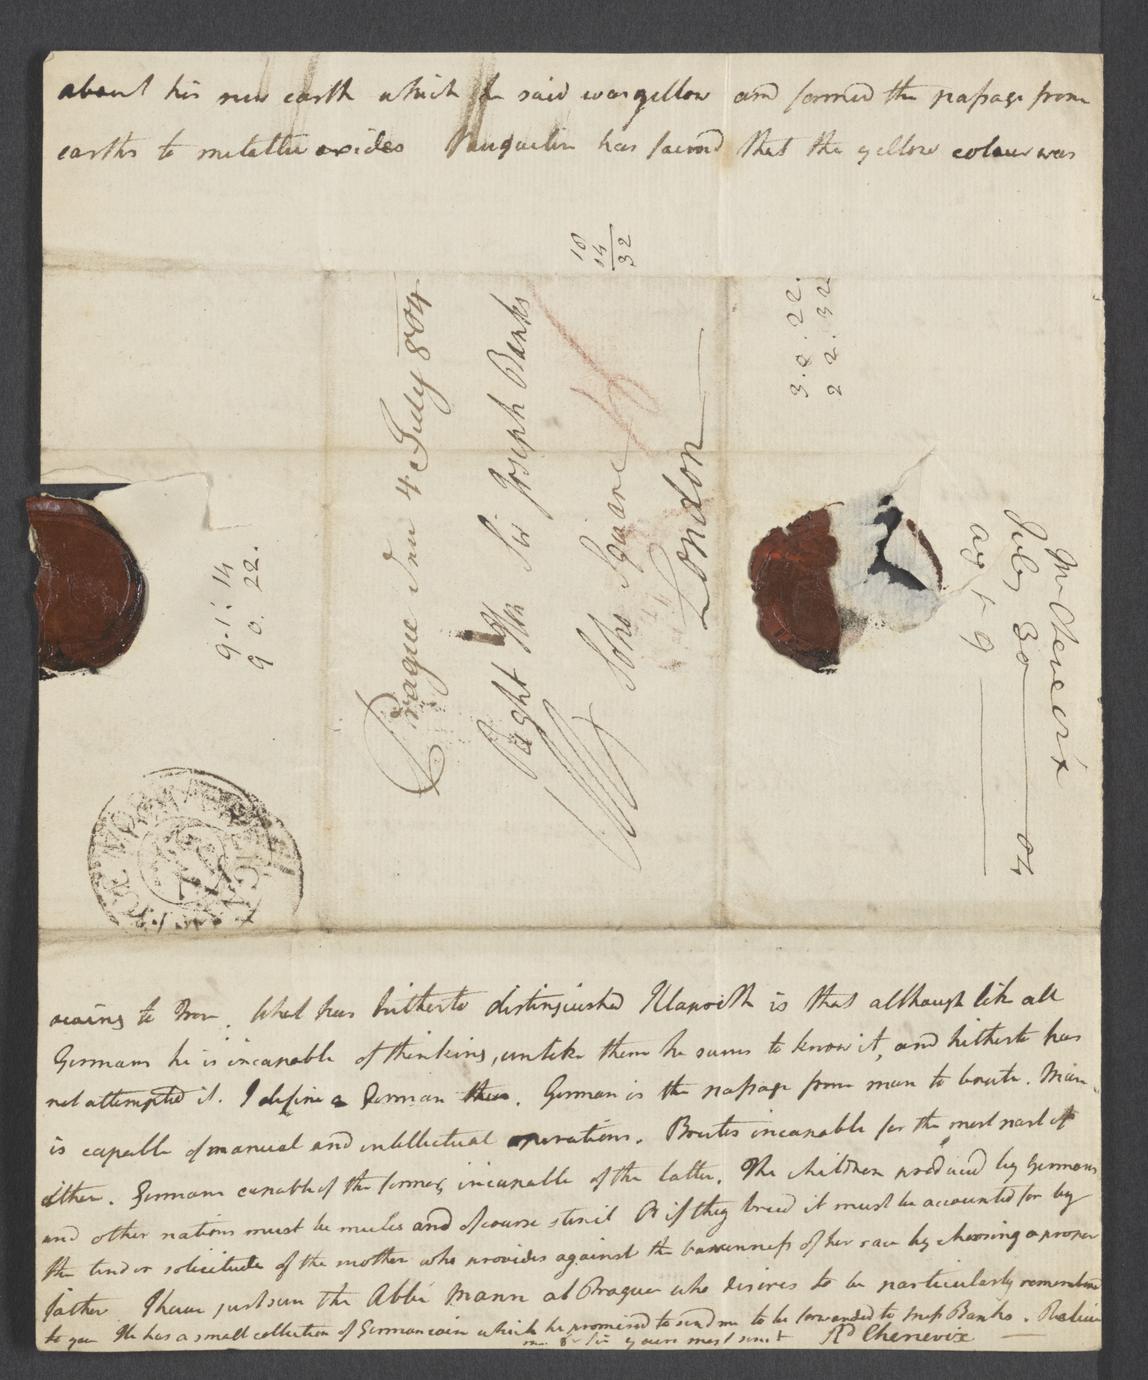 about his new earth which he said was yellow and formed the passage from
earths to metallic oxides Vauquelin has found that the yellow colour was
10
14
32
Prague den 4 July 804
Right Hble Sir Joseph Banks
Soho Square
London
3. 8. 22.
2 2. 32
9. 1. 14
9 0. 22.
Mr Chenevix
July 30 04
owing to Iron. What has hitherto distinguished Klaproth is that although like all
Germans he is incapable of thinking, unlike them he seems to know it, and hitherto has
not attempted it. I define a German thus. German is the passage from man to brute. Man
is capable of manual and intellectual operations. Brutes incapable for the most part of
either. Germans capable of the former, incapable of the latter. The children produced by Germans
and other nations must be mules and of course steril Or if they breed it must be accounted for by
the tender solicitude of the mother who provides against the barrenness of her race by choosing a proper
father I have just seen the Abbé Mann at Prague who desires to be particularly remembered
to you He has a small collection of German coin which he promised to send me to be forwarded to Miss Banks. Believe
me Dr Sir yours most sinct Rd Chenevix